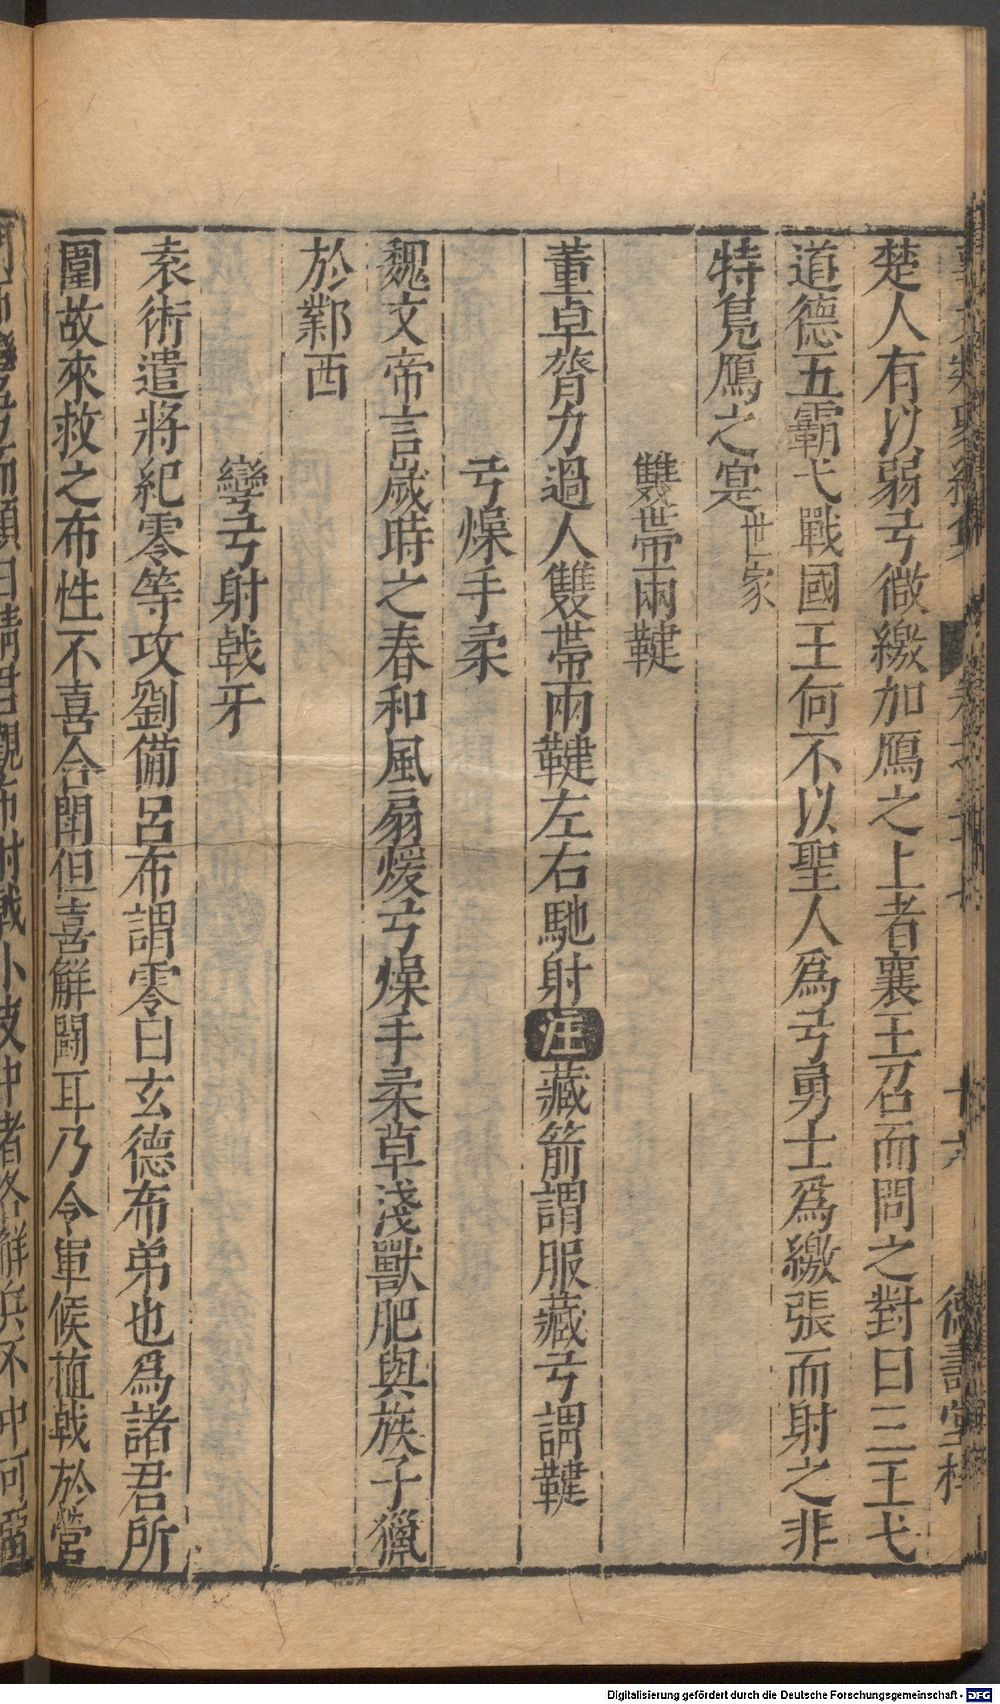 楚人有以弱弓微繳加鴈之上者襄王召而問之對曰三王弋
道德五霸弋戰國王何不以聖人爲弓勇士爲繳張而射之非
特鳧鴈之寔世家
雙帶兩鞬
董卓膂力過人雙帶兩鞬左右馳射注藏箭謂服藏弓謂鞬
弓燥手柔
魏文帝言嵗時之春和風扇煖弓燥手柔草淺獸肥與族子獵
於鄴西
彎弓射戟牙
袁術遣將紀零等攻劉備呂布謂零曰玄德布弟也爲諸君所
圍故來救之布性不喜合鬪但喜解鬪耳乃令軍候植戟於營
Digitalisierung gefördert durch die Deutsche Forschungsgemeinschaft - DFG